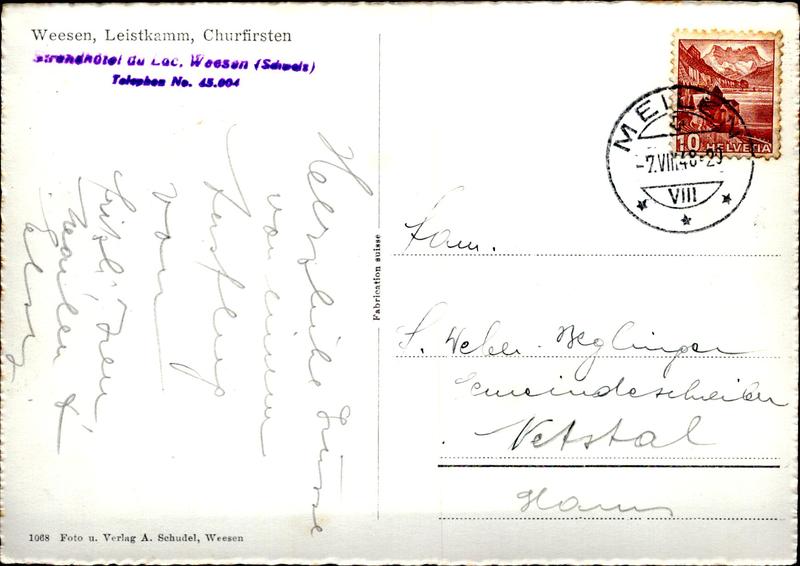 Weesen, Leistkamm, Churfirsten
Strandhôtel du Lac, Weesen (Schweiz)
Telephon No. 45.004
Herzliche Grüsse
von einem
Ausflug
vom
Fritzli, Iren
Marlen &
Elsy
1068 Foto u. Verlag A. Schudel, Weesen
Fabrication suisse
MEILEN
-7.VIII.48-20
VIII
10 HELVETIA
Fam.
S. Weber-Beglinger
Gemeindeschreiber
Netstal
Glarus